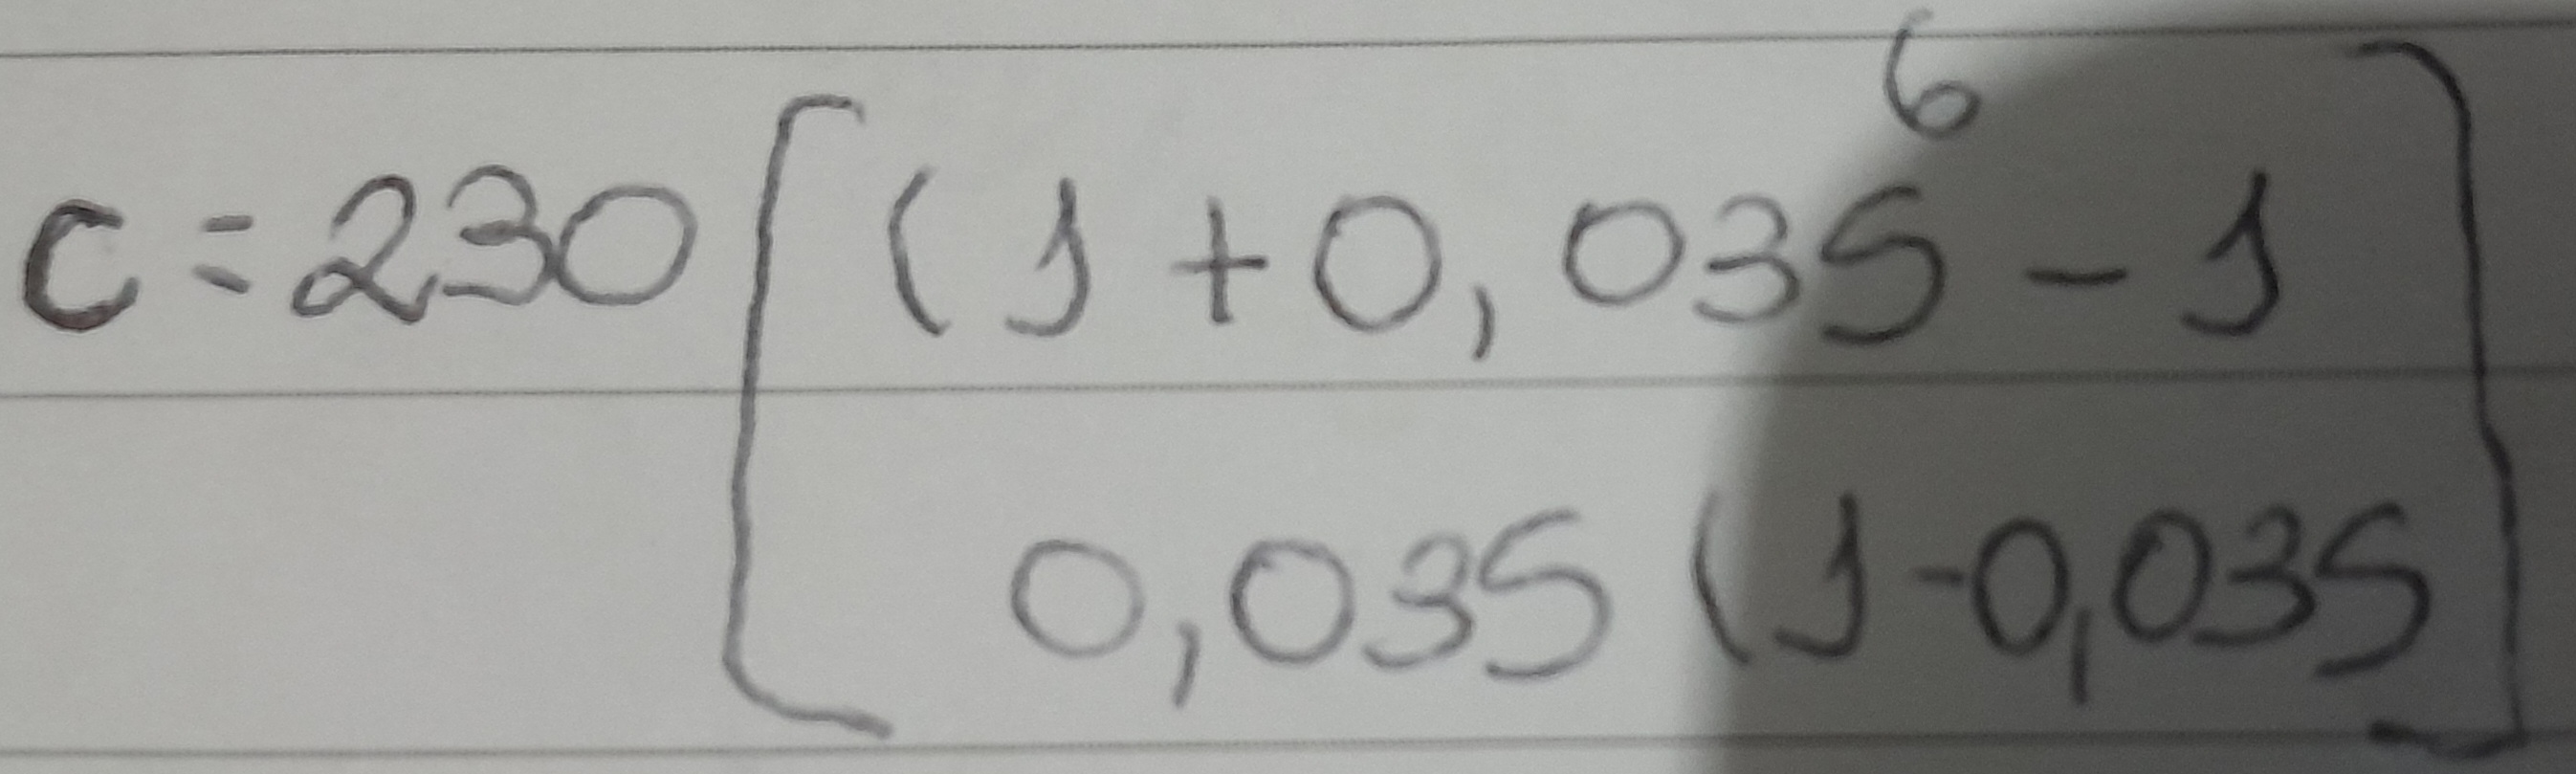 C = 230 [ (1 + 0,035⁶ - 1
0,035 (1 - 0,035 ]